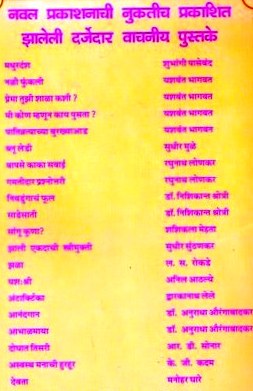 नवल प्रकाशनाची नुकतीच प्रकाशित
झालेली दर्जेदार वाचनीय पुस्तके
मधुरदंश शुभांगी पासेबंद
नळी फुंकली यशवंत भागवत
प्रेमा तुझी शाळा कशी ? यशवंत भागवत
मी कोण म्हणून काय पुसता ? यशवंत भागवत
पातिव्रत्याच्या बुरख्याआड यशवंत भागवत
धनु लेडी सुधीर मुळे
बापसे काका सवाई रघुनाथ लोणकर
गमतीदार प्रश्नोत्तरी रघुनाथ लोणकर
निवडुंगाचं फूल डॉ. निशिकान्त श्रोत्री
साडेसाती डॉ. निशिकान्त श्रोत्री
सांगू कुणा? शशिकला मेहता
झाली एकदाची स्त्रीमुक्ती सुधीर सुंठणकर
झळा ल. स. रोकडे
यशःश्री अनिल आठल्ये
अंटार्क्टिका द्वारकानाथ लेले
आनंदगान डॉ. अनुराधा औरंगाबादकर
आभाळमाया डॉ. अनुराधा औरंगाबादकर
दोघात तिसरी आर. डी. सोनार
अस्वस्थ मनाची हुरहूर के. जी. कदम
देवता मनोहर घारे